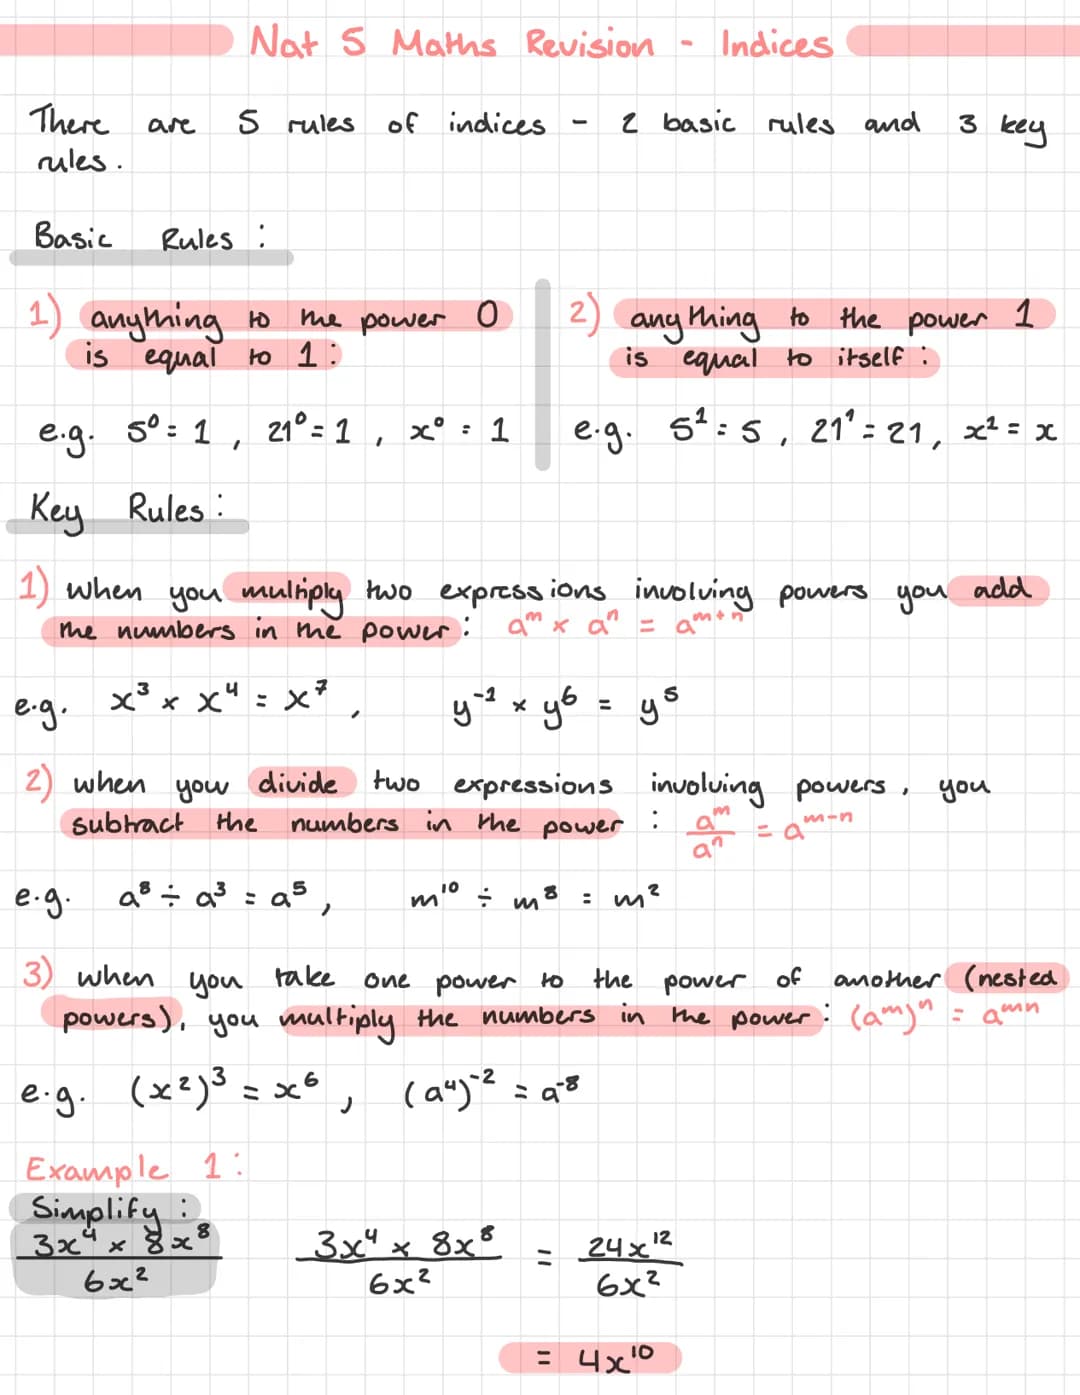 Nat 5 Maths Revision - Indices
There are 5 rules of indices - 2 basic rules and 3 key
rules.
Basic Rules:
1) anything to the power 0
is equal to 1:
e.g. 5⁰ = 1, 21⁰ = 1, x⁰ = 1
2) anything to the power 1
is equal to itself:
e.g. 5¹ = 5, 21¹ = 21, x¹ = x
Key Rules:
1) when you multiply two expressions involving powers you add
the numbers in the power: aᵐ × aⁿ = aᵐ⁺ⁿ
e.g. x³ × x⁴ = x⁷, y⁻¹ × y⁶ = y⁵
2) when you divide two expressions involving powers, you
subtract the numbers in the power: aᵐ/aⁿ = aᵐ⁻ⁿ
e.g. a⁸ ÷ a³ = a⁵, m¹⁰ ÷ m⁸ = m²
3) when you take one power to the power of another (nested
powers), you multiply the numbers in the power: (aᵐ)ⁿ = aᵐⁿ
e.g. (x²)³ = x⁶, (a⁴)⁻² = a⁻⁸
Example 1:
Simplify:
3x⁴ × 8x⁸
6x²
3x⁴ × 8x⁸ = 24x¹²
6x² 6x²
= 4x¹⁰